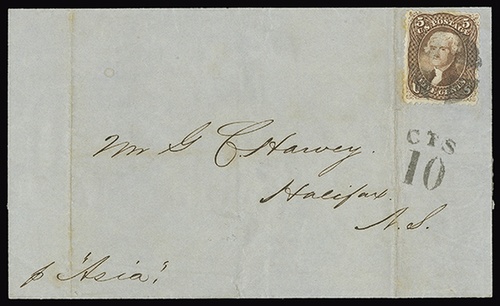 5 U.S. POSTAGE 5
FIVE CENTS
CTS
10
Mr G C. Harvey.
Halifax.
N.S.
p "Asia".